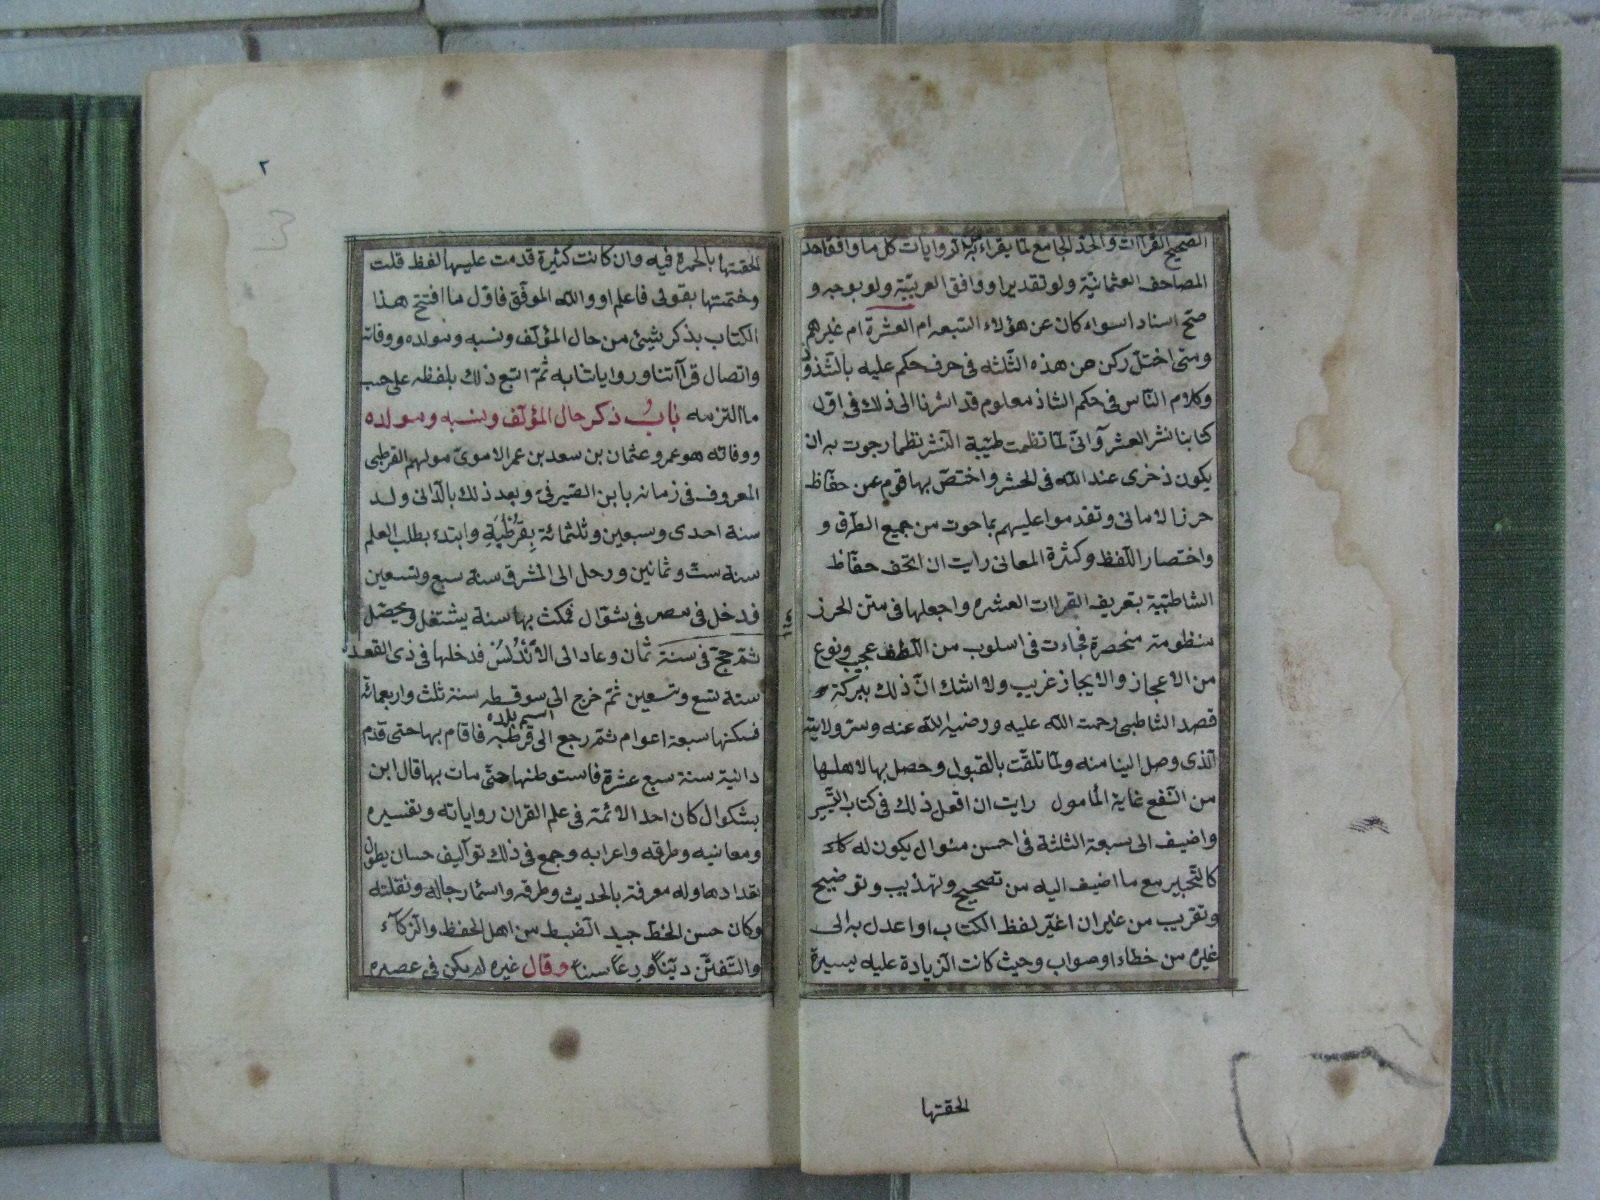 الصحيح القراات والحد الجامع لما يقراء به الروايات كل ما وافق احد
المصاحف العثمانية ولو تقديرا ووافق العربية ولو بوجه و
صح اسنادا سواء كان عن هؤلاء السبعه ام العشرة ام غيرهم
ومتى اختل ركن من هذه الثلثه فى حرف حكم عليه بالشذوذ
وكلام الناس فى حكم الشاذ معلوم قد اشرنا الى ذلك فى اول
كتابنا نشر العشر وانى لما نظمت طيبة النشر نظما رجوت به ان
يكون ذخرى عند الله فى الحشر واختص بها قوم عن حفاظ
حرز الامانى وتقدموا عليهم بما حوت من جميع الطرق و
واختصار اللفظ وكثرة المعانى رايت ان اتحف حفاظ
الشاطبية بتعريف القراات العشره واجعلها فى متن الحرز
منظومته منحصرة فجاءت فى اسلوب من اللطف عجيب ونوع
من الاعجاز والايجاز غريب ولا اشك ان ذلك ببركة
قصد الشاطبى رحمت الله عليه ورضيه الله عنه وسر ولايته
الذى وصل الينا منه ولما تلقت بالقبول وحصل بها لاهلها
من النفع غاية المأمول رايت ان افعل ذلك فى كتاب التيسير
واضيف الى سبعة الثلثة فى احسن منوال يكون له
كالتحبير مع ما اضيف اليه من تصحيح وتهذيب وتوضيح
وتقريب من غير ان اغير لفظ الكتاب او اعدل به الى
غيره من خطاء او صواب وحيث كانت الزيادة عليه يسيرة
الحقتها
٢
الحقتها بالحمرة فيه وان كانت كثيرة قدمت عليها لفظ قلت
وختمتها بقولى فاعلم او والله الموفق فاول ما افتتح هذا
الكتاب بذكر شيئ من حال المؤلف ونسبه ومولده ووفاته
واتصال قراآتنا وروايتنا به ثم اتبع ذلك بلفظه على حسب
ما التزمه باب ذكر حال المؤلف ونسبه ومولده
ووفاته هو عمرو عثمان بن سعد بن عمر الاموى مولهم القرطبى
المعروف فى زمانه بابن الصيرفى وبعد ذلك بالدانى ولد
سنة احدى وسبعين وثلثمائة بقرطبة وابتدء بطلب العلم
سنة ست وثمانين ورحل الى المشرق سنة سبع وتسعين
فدخل فى مصر فى شوال فمكث بها سنة يشتغل ويحصل
ثم حج فى سنة ثمان وعاد الى الاندلس فدخلها فى ذى القعدة
سنة تسع وتسعين ثم خرج الى سرقسطه سنة ثلث واربعمائة
اسم بلده
فسكنها سبعة اعوام ثم رجع الى قرطبه فاقام بها حتى قدم
دانية سنة سبع عشرة فاستوطنها حتى مات بها قال ابن
بشكوال كان احد الائمة فى علم القران رواياته وتفسيره
ومعانيه وطرقه واعرابه وجمع فى ذلك تواليف حسان يطول
تعدادها وله معرفة بالحديث وطرقه واسماء رجاله ونقلته
وكان حسن الخط جيد الضبط من اهل الحفظ والذكاء
والتفنن دينا ورعا سنيا وقال غيره لم يكن فى عصره